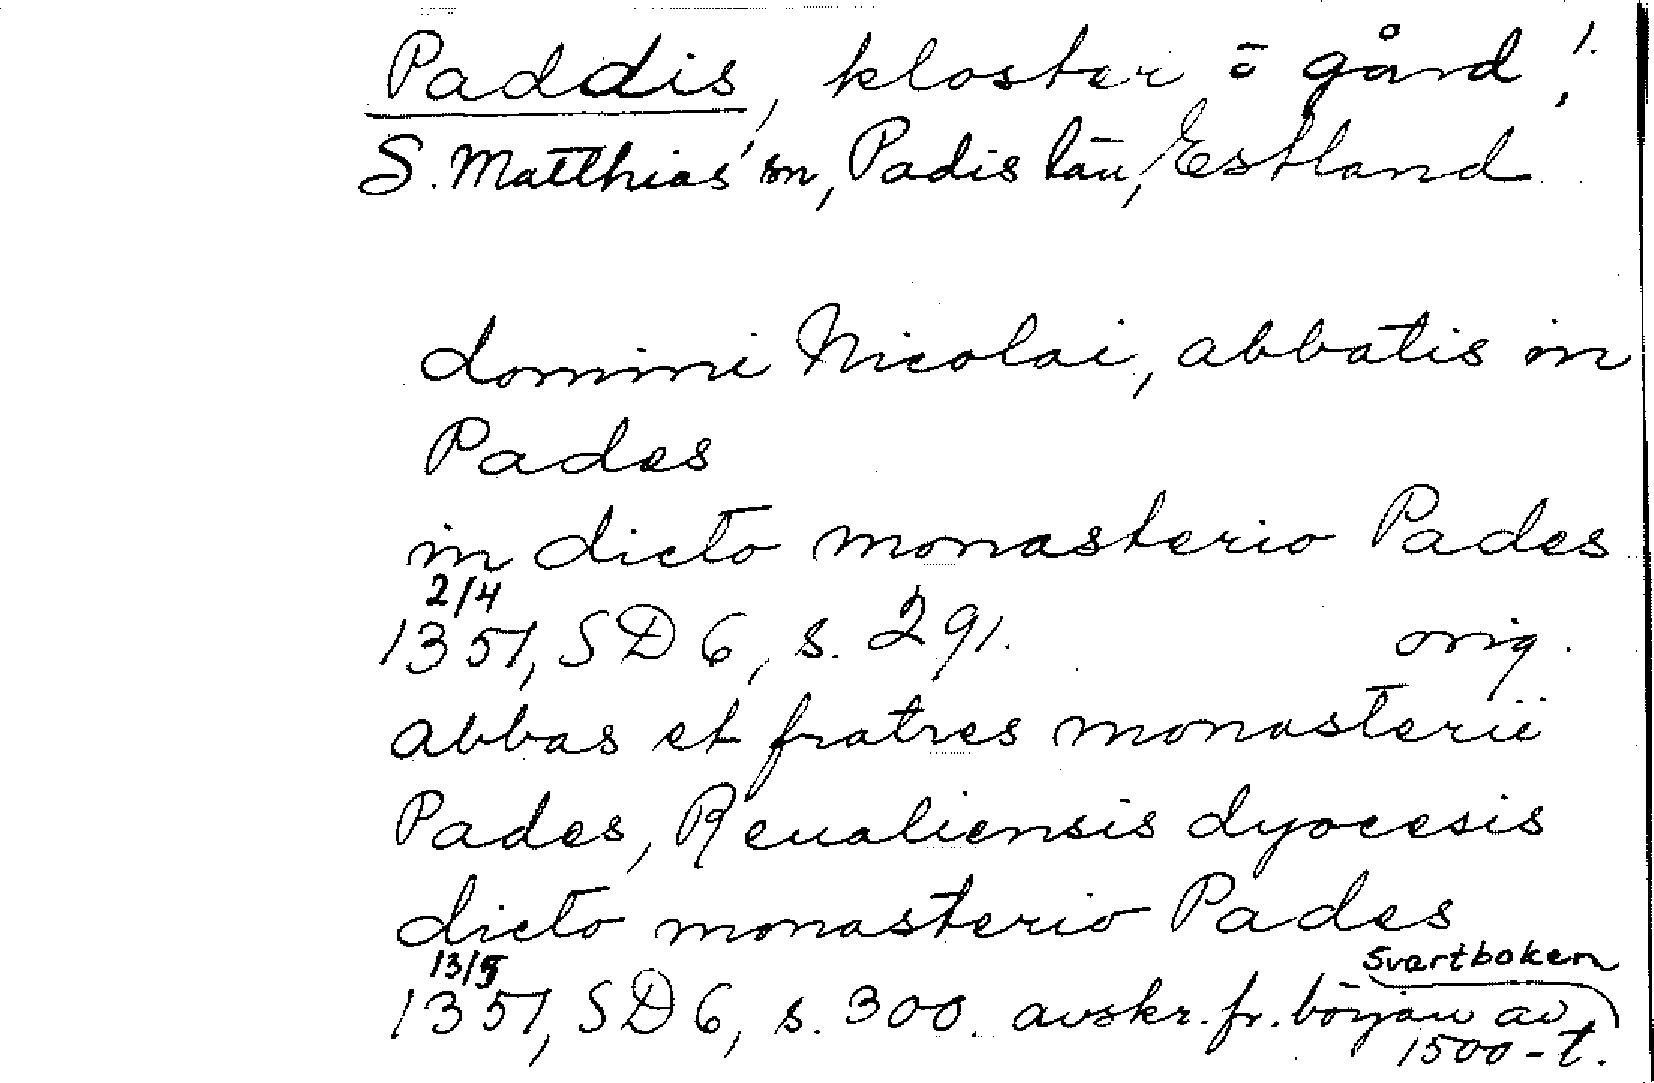 Paddis, kloster o gård, 1.
S. Matthias' sn, Padis län, Estland
domini Nicolai, abbatis in
Pades
in dicto monasterio Pades
2/4
1351, SD 6, s. 291. orig.
abbas et fratres monasterii
Pades, Reualiensis dyocesis
dicto monasterio Pades
13/5 Svartboken
1351, SD 6, s. 300. avskr. fr. början av
1500-t.